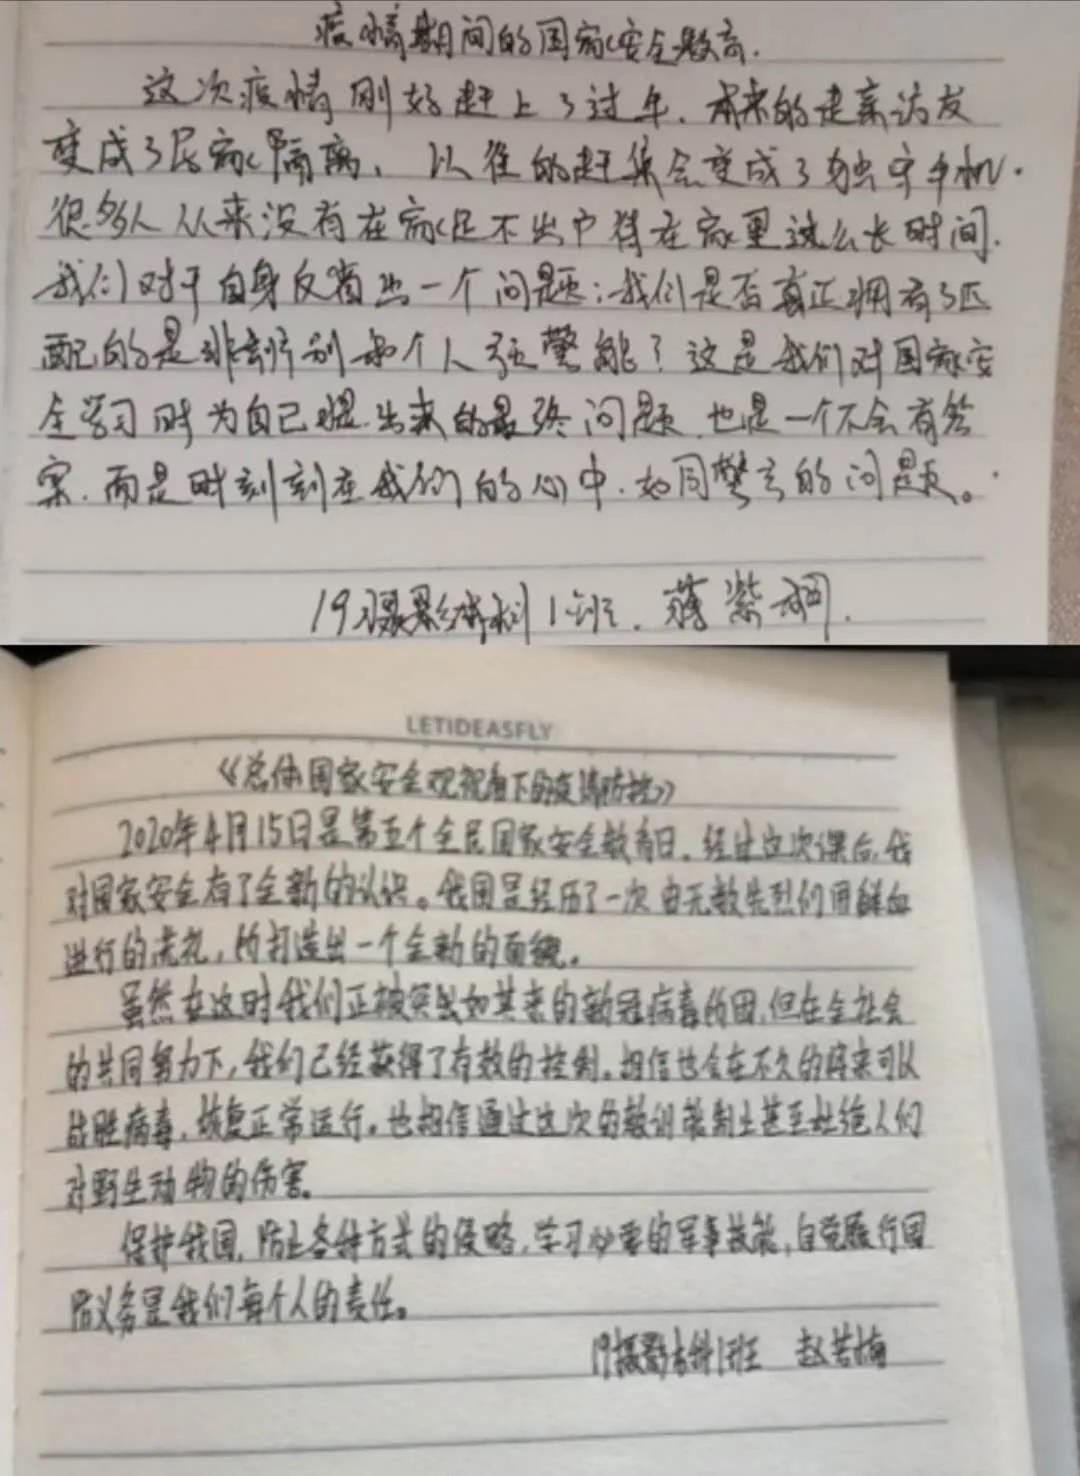 疫情期间的国家安全教育.
这次疫情刚好赶上了过年.本来的走亲访友
变成了居家隔离、以往的赶集会变成了独守手机.
很多人从来没有在家足不出户待在家里这么长时间.
我们对于自身反省出一个问题:我们是否真正拥有了匹
配的是非辨别和个人预警能?这是我们对国家安
全学习时为自己提出来的最终问题.也是一个不会有答
案.而是时刻刻在我们的心中.如同警言的问题。
19摄影本科1班.蒋紫
LETIDEASFLY
《总体国家安全观视角下的疫情防控》
2020年4月15日是第五个全民国家安全教育日。经过这次课后,我
对国家安全有了全新的认识。我国是经历了一次由无数先烈们用鲜血
进行的洗礼,所打造出一个全新的面貌。
虽然在这时我们正被突如其来的新冠病毒所困,但在全社会
的共同努力下,我们已经获得了有效的控制。相信也会在不久的将来可以
战胜病毒,恢复正常运行。也相信通过这次的教训能制止甚至杜绝人们
对野生动物的伤害。
保护我国,防止各种方式的侵略,学习必要的军事技能,自觉履行国
防义务是我们每个人的责任。
19摄影本科1班 赵若梅